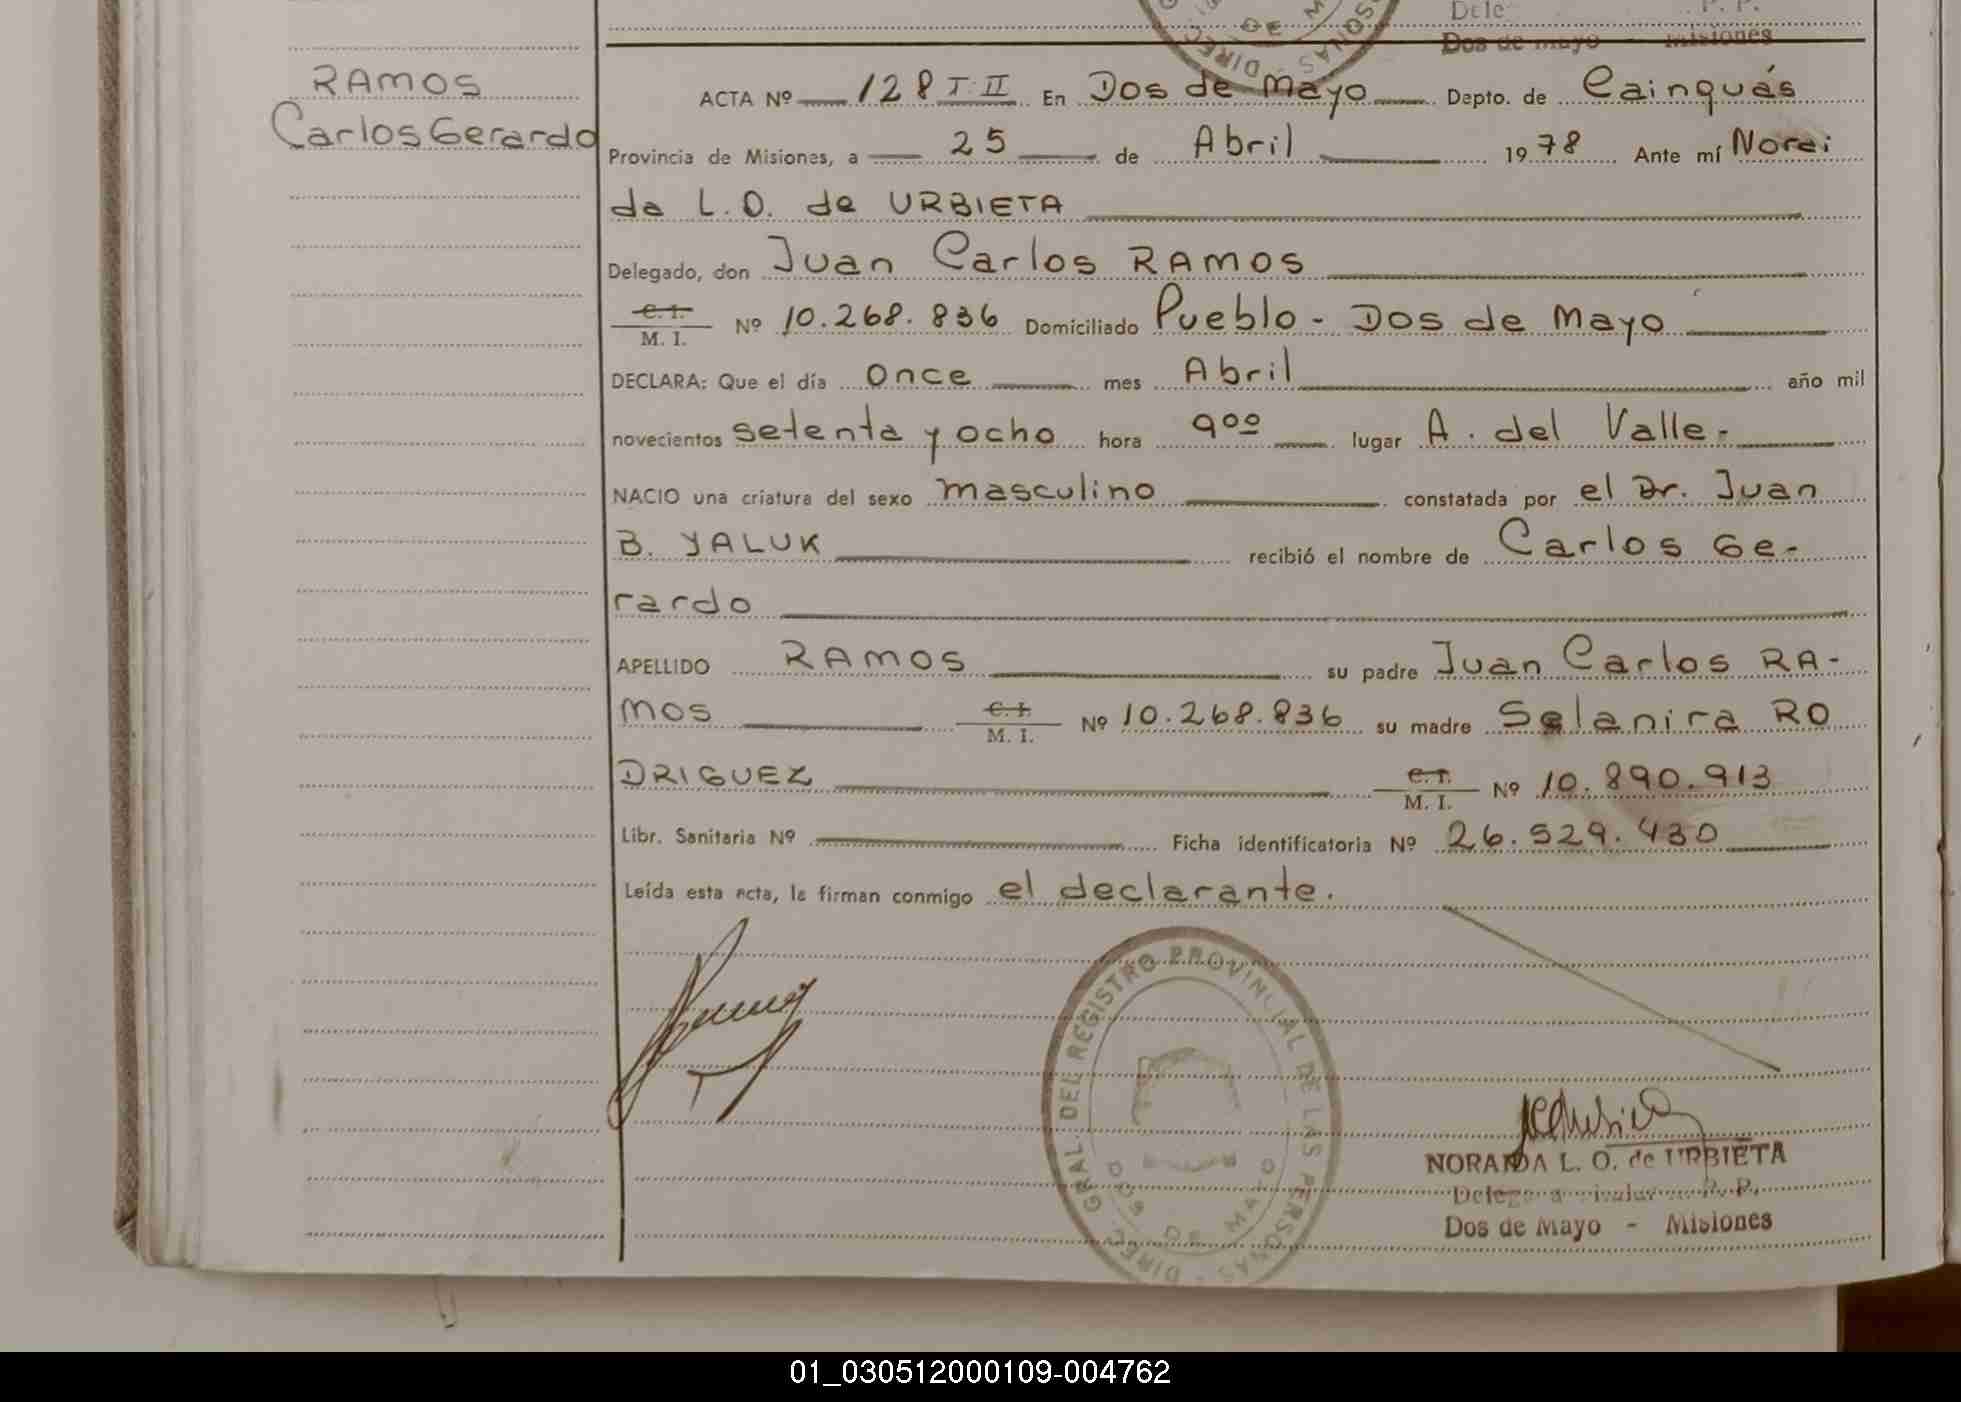 Dele P. P.
Dos de Mayo - Misiones
RAMOS
Carlos Gerardo
ACTA Nº 128 T. II En Dos de Mayo Depto. de Cainguás
Provincia de Misiones, a 25 de Abril 1978 Ante mí Norai
da L. O. de URBIETA
Delegado, don Juan Carlos RAMOS
C. I. / M. I. Nº 10.268.836 Domiciliado Pueblo - Dos de Mayo
DECLARA: Que el día once mes Abril año mil
novecientos setenta y ocho hora 9ºº lugar A. del Valle.
NACIO una criatura del sexo masculino constatada por el Dr. Juan
B. YALUK recibió el nombre de Carlos Ge-
rardo
APELLIDO RAMOS su padre Juan Carlos RA-
MOS C. I. / M. I. Nº 10.268.836 su madre Selanira RO
DRIGUEZ C. I. / M. I. Nº 10.890.913
Libr. Sanitaria Nº Ficha identificatoria Nº 26.529.430
Leída esta acta, la firman conmigo el declarante.
DIREC. GRAL. DEL REGISTRO PROVINCIAL DE LAS PERSONAS
DOS DE MAYO
NORAIDA L. O. de URBIETA
Dos de Mayo - Misiones
01_030512000109-004762